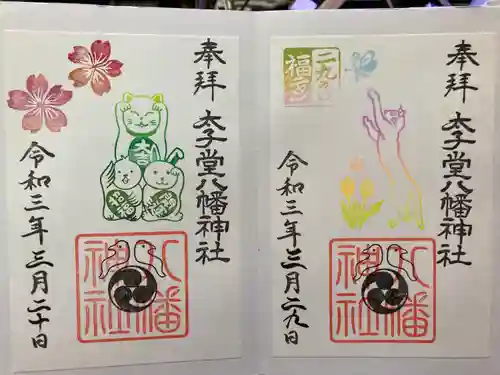 奉拝
太子堂八幡神社
令和三年三月二十日
八幡
神社
奉拝
太子堂八幡神社
二九の
福
令和三年三月二九日
八幡
神社